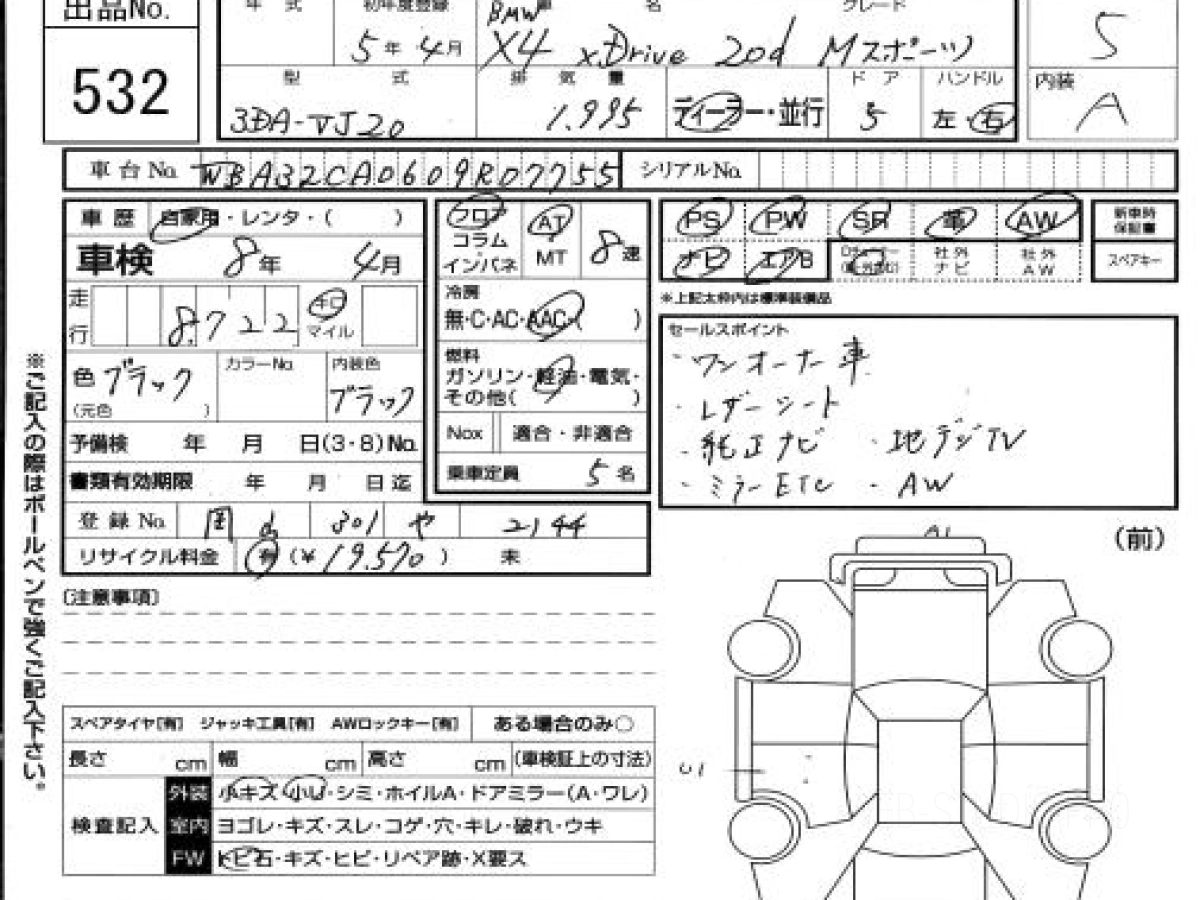 出品No.
532
年 式
初年度登録
5年 4月
車 名
グレード
BMW
X4 xDrive 20d Mスポーツ
5
型 式
3DA-VJ20
排 気 量
1.995
ディーラー・並行
ドア
5
ハンドル
左・右
内装
A
車台No. WBA32CA0609R07755
シリアルNo.
車歴 自家用・レンタ・( )
車検 8年 4月
走行 8.722 キロ マイル
色 ブラック
(元色 )
カラーNo.
内装色
ブラック
予備検 年 月 日(3・8)No.
書類有効期限 年 月 日迄
登録No. 301 や 2144
リサイクル料金 有 (¥19.570) 未
フロア
コラム
インパネ
AT
MT
8速
冷房
無・C・AC・AAC・( )
燃料
ガソリン・軽油・電気・
その他( )
Nox 適合・非適合
乗車定員 5名
PS PW SR 革 AW
ナビ エアB
社外ナビ
社外AW
新車時保証書
スペアキー
※上記太枠内は標準装備品
セールスポイント
・ワンオーナー車
・レザーシート
・純正ナビ ・地デジTV
・ミラーETC ・AW
※ご記入の際はボールペンで強くご記入下さい。
[注意事項]
(前)
A1
U1
スペアタイヤ[有] ジャッキ工具[有] AWロックキー[有] ある場合のみ○
長さ cm 幅 cm 高さ cm (車検証上の寸法)
検査記入
外装 小キズ・小U・シミ・ホイルA・ドアミラー(A・ワレ)
室内 ヨゴレ・キズ・スレ・コゲ・穴・キレ・破れ・ウキ
FW トビ石・キズ・ヒビ・リペア跡・X要ス